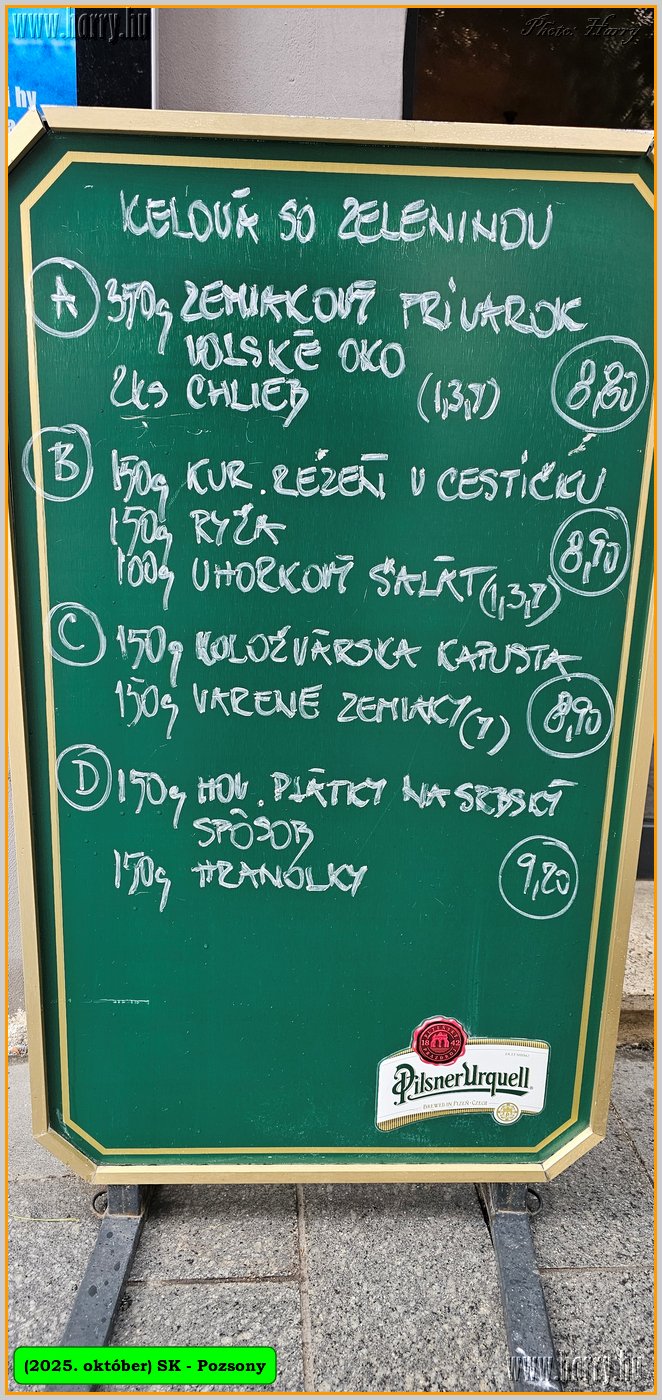 www.harry.hu
Photo: Harry
i hy
KELOVÁ SO ZELENINOU
A 350g ZEMIAKOVÝ PRÍVAROK
VOLSKÉ OKO
2ks CHLIEB (1,3,7) 8,80
B 150g KUR. REZEŇ V CESTÍČKU
150g RYŽA
100g UHORKOVÝ ŠALÁT (1,3,7) 8,90
C 150g KOLOŽVÁRSKA KAPUSTA
150g VARENÉ ZEMIAKY (7) 8,90
D 150g HOV. PLÁTKY NA SRBSKÝ
SPÔSOB
150g HRANOLKY 9,20
1842
Pilsner Urquell
BREWED IN PLZEŇ · CZECH
www.harry.hu
(2025. október) SK - Pozsony